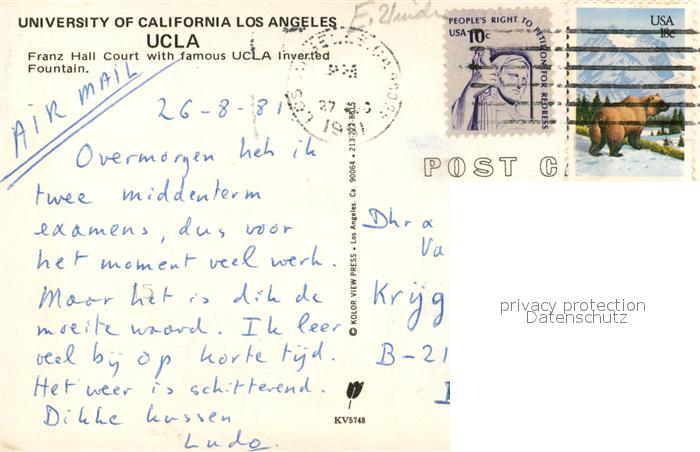 UNIVERSITY OF CALIFORNIA LOS ANGELES
UCLA
Franz Hall Court with famous UCLA Inverted
Fountain.
AIR MAIL
26-8-81
Overmorgen heb ik
twee middenterm
examens, dus voor
het moment veel werk.
Maar het is dik de
moeite waard. Ik leer
veel bij op korte tijd.
Het weer is schitterend.
Dikke kussen
Ludo.
© KOLOR VIEW PRESS • Los Angeles Ca. 90064 • 213-272-8615
KV5748
PEOPLE'S RIGHT TO PETITION FOR REDRESS
USA 10c
USA
18c
PM
27
POST CA
Dhr &
Va
Krijg
B-21
privacy protection
Datenschutz